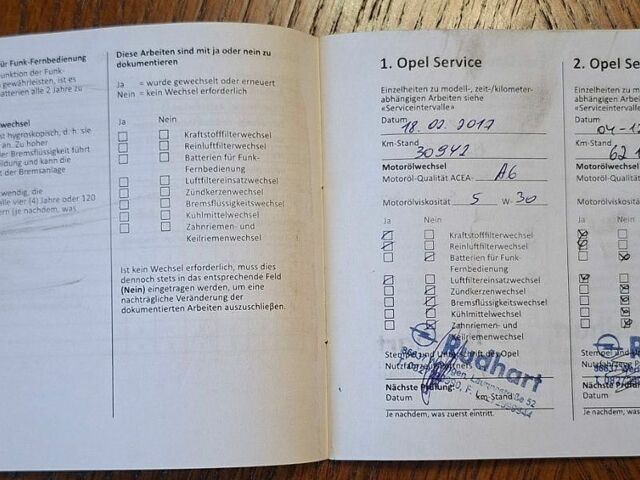 für Funk-Fernbedienung
unktion der Funk-
gewährleisten, ist es
atterien alle 2 Jahre zu
wechsel
st hygroskopisch, d. h. sie
an. Zu hoher
der Bremsflüssigkeit führt
bildung und kann die
t der Bremsanlage
wendig, die
lle vier (4) Jahre oder 120
ern (je nachdem, was
Diese Arbeiten sind mit ja oder nein zu
dokumentieren
Ja = wurde gewechselt oder erneuert
Nein = kein Wechsel erforderlich
Ja Nein
Kraftstofffilterwechsel
Reinluftfilterwechsel
Batterien für Funk-
Fernbedienung
Luftfiltereinsatzwechsel
Zündkerzenwechsel
Bremsflüssigkeitswechsel
Kühlmittelwechsel
Zahnriemen- und
Keilriemenwechsel
Ist kein Wechsel erforderlich, muss dies
dennoch stets in das entsprechende Feld
(Nein) eingetragen werden, um eine
nachträgliche Veränderung der
dokumentierten Arbeiten auszuschließen.
1. Opel Service
Einzelheiten zu modell-, zeit-/kilometer-
abhängigen Arbeiten siehe
«Serviceintervalle»
Datum 18.02.2017
Km-Stand 30942
Motorölwechsel
Motoröl-Qualität ACEA- A6
Motorölviskosität 5 W- 30
Ja Nein
Kraftstofffilterwechsel
Reinluftfilterwechsel
Batterien für Funk-
Fernbedienung
Luftfiltereinsatzwechsel
Zündkerzenwechsel
Bremsflüssigkeitswechsel
Kühlmittelwechsel
Zahnriemen- und
Keilriemenwechsel
Rudhart
Stempel und Unterschrift des Opel
Nächste Prüfung:
Datum km-Stand
Je nachdem, was zuerst eintritt.
2. Opel Se
Einzelheiten zu
abhängigen Arb
«Serviceinterval
Datum
04-12
Km-Stand
62 1
Motorölwechse
Motoröl-Qualitä
Motorölviskosit
Ja Nein
K
R
B
F
L
Z
B
K
Z
K
Stempel und U
Nutzfahrzeug P
Nächste Prüfun
Datum
Je nachdem, wa